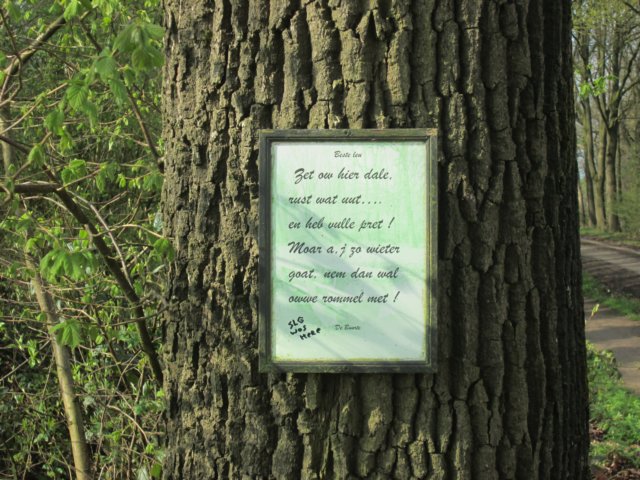 Beste leu
Zet ow hier dale,
rust wat uut....
en heb vulle pret !
Moar a,j zo wieter
goat, nem dan wal
owwe rommel met !
SLG
was
HERE
De Buurte